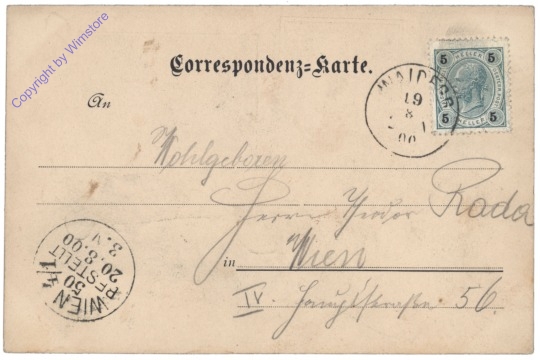 Copyright by Wimstore
Correspondenz-Karte.
WAIDEGG
19
8
00
5 HELLER 5
5 HELLER 5
An
Wohlgeboren
Herrn Theodor Rada
in Wien
IV. Hauptstraße 56.
WIEN 4/1
50
BESTELLT
20.8.00
3.N